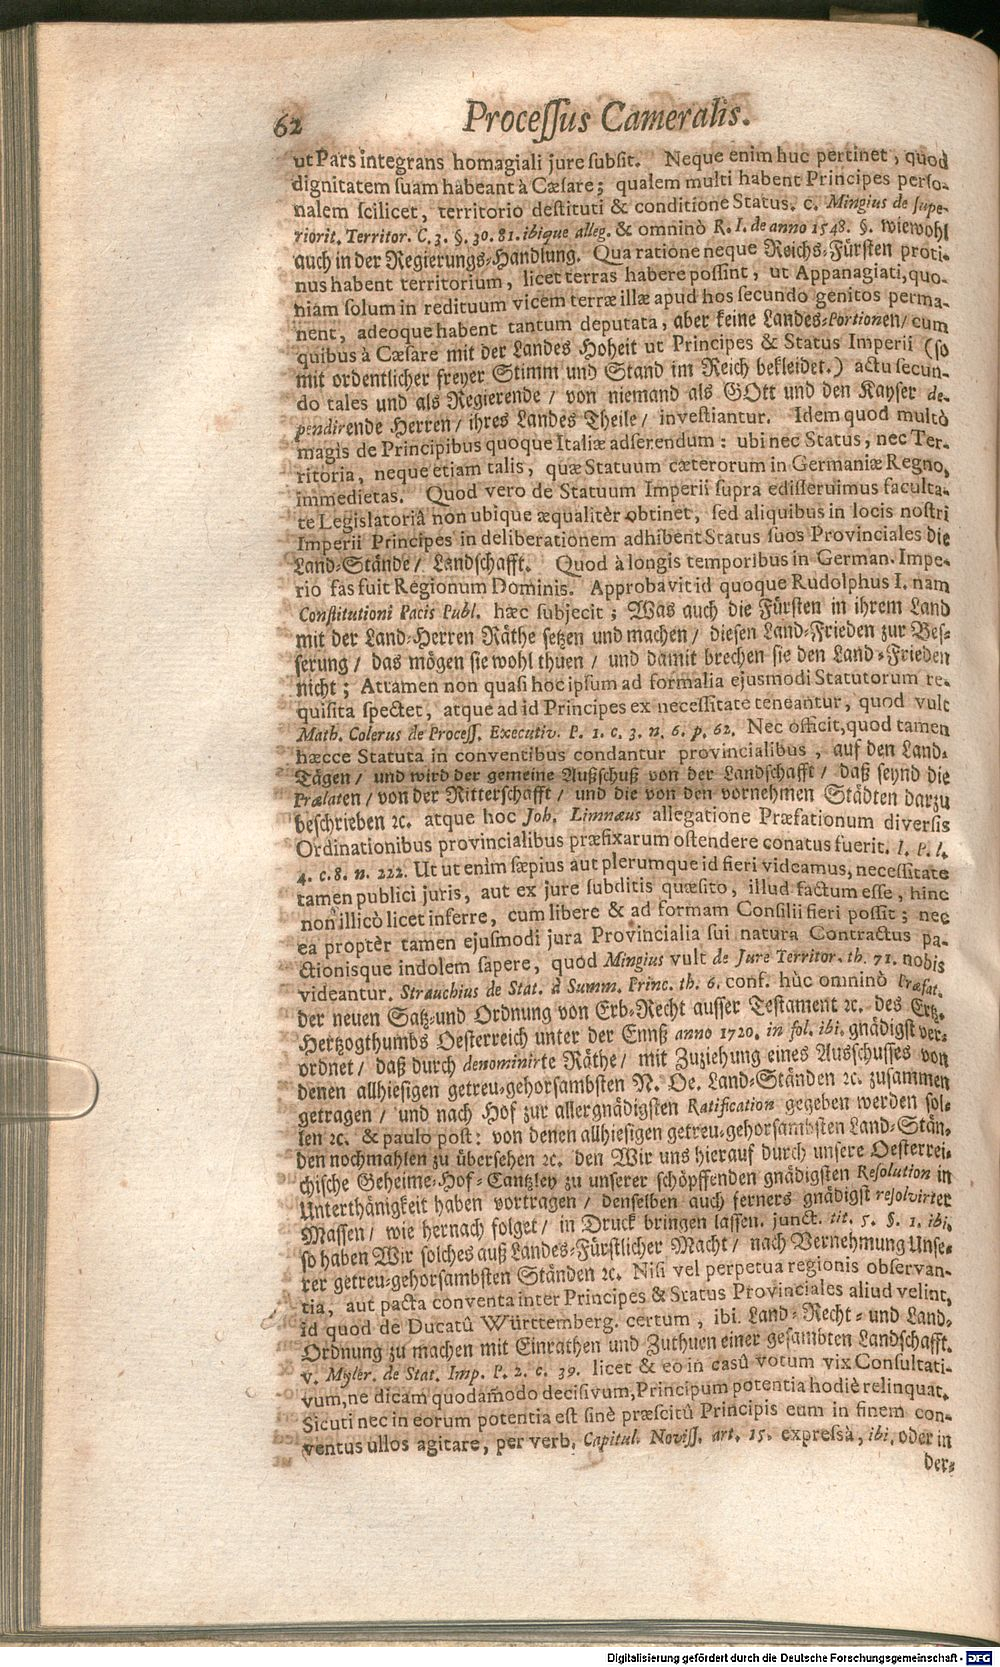 62 Processus Cameralis.
ut Pars integrans homagiali jure subsit. Neque enim huc pertinet, quod
dignitatem suam habeant à Cæsare; qualem multi habent Principes perso-
nalem scilicet, territorio destituti & conditione Status. c. Mingius de supe-
riorit. Territor. C. 3. §. 30. 81. ibique alleg. & omninò R. I. de anno 1548. §. wiewohl
auch in der Regierungs-Handlung. Qua ratione neque Reichs-Fürsten proti-
nus habent territorium, licet terras habere possint, ut Appanagiati, quo-
niam solum in redituum vicem terræ illæ apud hos secundo genitos perma-
nent, adeoque habent tantum deputata, aber keine Landes-Portionen/ cum
quibus à Cæsare mit der Landes Hoheit ut Principes & Status Imperii (so
mit ordentlicher freyer Stimm und Stand im Reich bekleidet.) actu secun-
do tales und als Regierende/ von niemand als GOtt und den Kayser de-
pendirende Herren/ ihres Landes Theile/ investiantur. Idem quod multò
magis de Principibus quoque Italiæ adserendum: ubi nec Status, nec Ter-
ritoria, neque etiam talis, quæ Statuum cæterorum in Germaniæ Regno,
immedietas. Quod vero de Statuum Imperii supra edisseruimus faculta-
te Legislatoriâ non ubique æqualitèr obtinet, sed aliquibus in locis nostri
Imperii Principes in deliberationem adhibent Status suos Provinciales die
Land-Stände/ Landschafft. Quod à longis temporibus in German. Impe-
rio fas fuit Regionum Dominis. Approbavit id quoque Rudolphus I. nam
Constitutioni Pacis Publ. hæc subjecit; Was auch die Fürsten in ihrem Land
mit der Land-Herren Räthe setzen und machen/ diesen Land-Frieden zur Bes-
serung/ das mögen sie wohl thuen/ und damit brechen sie den Land-Frieden
nicht; Attamen non quasi hoc ipsum ad formalia ejusmodi Statutorum re-
quisita spectet, atque ad id Principes ex necessitate teneantur, quod vult
Math. Colerus de Process. Executiv. P. 1. c. 3. n. 6. p. 62. Nec officit, quod tamen
hæcce Statuta in conventibus condantur provincialibus, auf den Land-
Tägen/ und wird der gemeine Außschuß von der Landschafft/ daß seynd die
Prælaten/ von der Ritterschafft/ und die von den vornehmen Städten darzu
beschrieben ꝛc. atque hoc Joh. Limnæus allegatione Præfationum diversis
Ordinationibus provincialibus præfixarum ostendere conatus fuerit. l. P. l.
4. c. 8. n. 222. Ut ut enim sæpius aut plerumque id fieri videamus, necessitate
tamen publici juris, aut ex jure subditis quæsito, illud factum esse, hinc
non illicò licet inferre, cum libere & ad formam Consilii fieri possit; nec
ea proptèr tamen ejusmodi jura Provincialia sui natura Contractus pa-
ctionisque indolem sapere, quod Mingius vult de Jure Territor. th. 71. nobis
videantur. Strauchius de Stat. à Summ. Princ. th. 6. conf. hùc omninò Præfat.
der neuen Satz-und Ordnung von Erb-Recht ausser Testament ꝛc. des Ertz-
Hertzogthumbs Oesterreich unter der Ennß anno 1720. in fol. ibi. gnädigst ver-
ordnet/ daß durch denominirte Räthe/ mit Zuziehung eines Ausschusses von
denen allhiesigen getreu-gehorsambsten N. Oe. Land-Ständen ꝛc. zusammen
getragen/ und nach Hof zur allergnädigsten Ratification gegeben werden sol-
len ꝛc. & paulo post: von denen allhiesigen getreu-gehorsambsten Land-Stän-
den nochmahlen zu übersehen ꝛc. den Wir uns hierauf durch unsere Oesterrei-
chische Geheime-Hof-Cantzley zu unserer schöpffenden gnädigsten Resolution in
Unterthänigkeit haben vortragen/ denselben auch ferners gnädigst resolvirter
Massen/ wie hernach folget/ in Druck bringen lassen. junct. tit. 5. §. 1. ibi.
so haben Wir solches auß Landes-Fürstlicher Macht/ nach Vernehmung Unse-
rer getreu-gehorsambsten Ständen ꝛc. Nisi vel perpetua regionis observan-
tia, aut pacta conventa inter Principes & Status Provinciales aliud velint,
id quod de Ducatû Württemberg. certum, ibi. Land-Recht-und Land-
Ordnung zu machen mit Einrathen und Zuthuen einer gesambten Landschafft.
v. Myler. de Stat. Imp. P. 2. c. 39. licet & eo in casû votum vix Consultati-
vum, ne dicam quodam̃odo decisivum, Principum potentia hodiè relinquat.
Sicuti nec in eorum potentia est sinè præscitû Principis eum in finem con-
ventus ullos agitare, per verb. Capitul. Noviss. art. 15. expressà, ibi. oder in
der-
Digitalisierung gefördert durch die Deutsche Forschungsgemeinschaft - DFG